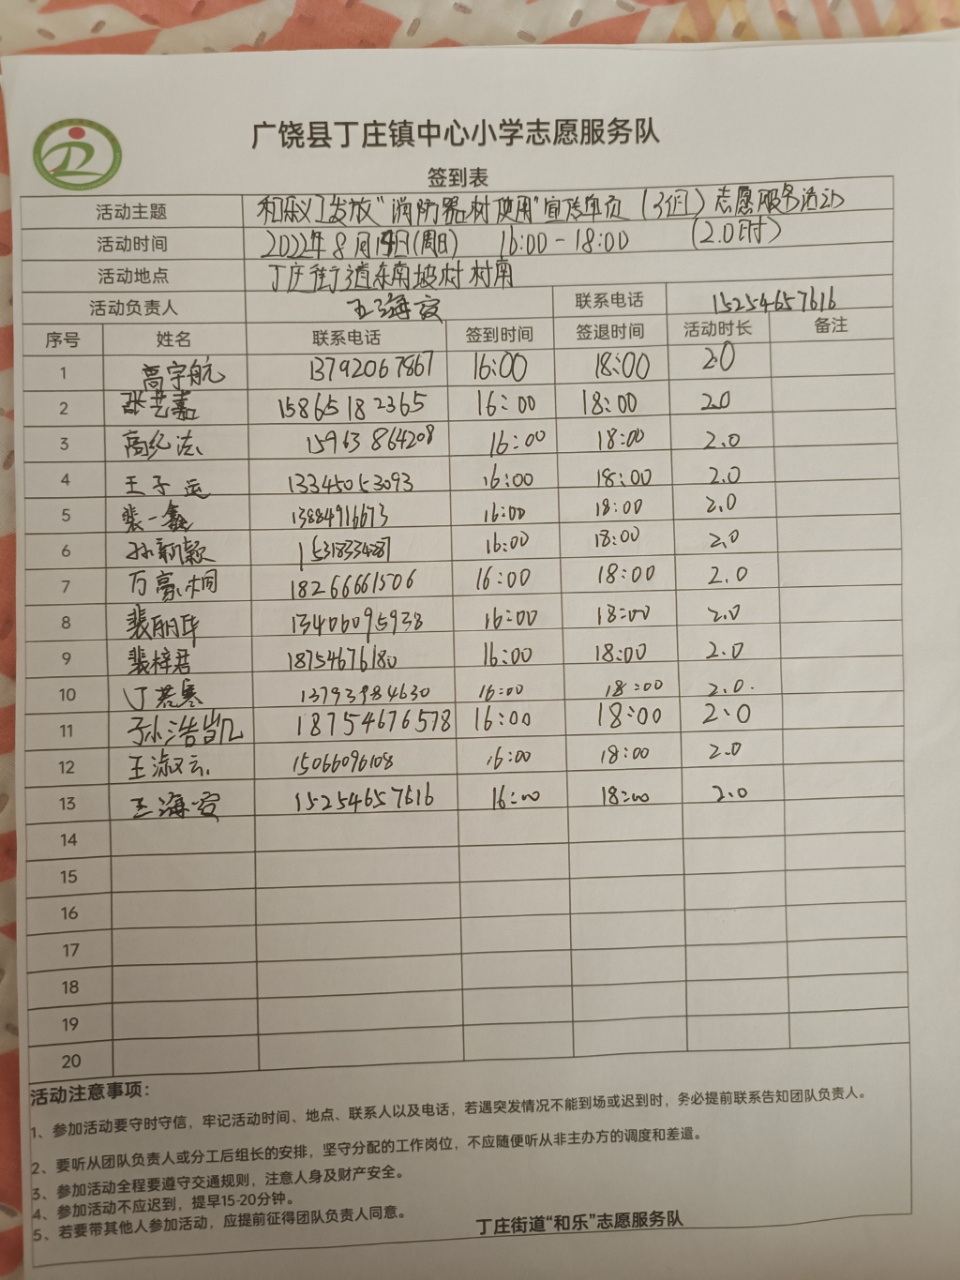 广饶县丁庄镇中心小学志愿服务队
签到表
活动主题 和乐义工发放“消防器材使用”宣传单页(3组)志愿服务活动
活动时间 2022年8月14日(周日) 16:00-18:00 (2.0时)
活动地点 丁庄街道东南坡村村南
活动负责人 王海 联系电话 15254657616
序号 姓名 联系电话 签到时间 签退时间 活动时长 备注
1 高宇航 13792067867 16:00 18:00 2.0
2 张艺嘉 15865182365 16:00 18:00 2.0
3 高纪法 15963864208 16:00 18:00 2.0
4 王子运 13345053093 16:00 18:00 2.0
5 裴一鑫 13884916673 16:00 18:00 2.0
6 孙新颖 16:00 18:00 2.0
7 万豪桐 18266661506 16:00 18:00 2.0
8 裴丽华 13406095938 16:00 18:00 2.0
9 裴梓君 18754676180 16:00 18:00 2.0
10 丁 16:00 18:00 2.0.
11 孙浩凯 18754676578 16:00 18:00 2.0
12 王淑云 15066096108 16:00 18:00 2.0
13 王海 15254657616 16:00 18:00 2.0
14
15
16
17
18
19
20
活动注意事项:
1、参加活动要守时守信,牢记活动时间、地点、联系人以及电话,若遇突发情况不能到场或迟到时,务必提前联系告知团队负责人。
2、要听从团队负责人或分工后组长的安排,坚守分配的工作岗位,不应随便听从非主办方的调度和差遣。
3、参加活动全程要遵守交通规则,注意人身及财产安全。
4、参加活动不应迟到,提早15-20分钟。
5、若要带其他人参加活动,应提前征得团队负责人同意。
丁庄街道“和乐”志愿服务队